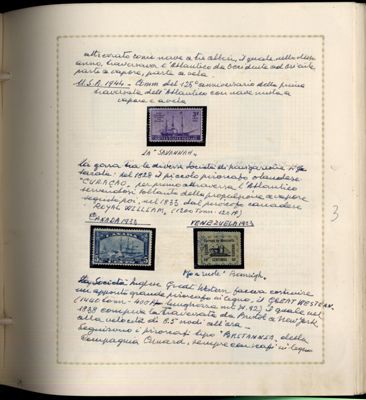 attrezzato come nave a tre alberi, il quale nello stesso
anno, traversava l'Atlantico da Occidente ad Oriente
parte a vapore, parte a vela.
U.S.A. 1944 - Comm del 125° anniversario della prima
traversata dell'Atlantico con nave mista a
vapore e a vela
LA "SAVANNAH"
La gara tra le diverse Società di navigazione
nel 1828 il piccolo piroscafo olandese
"CURAÇAO", per primo attraversa l'Atlantico
servendosi soltanto della propulsione a vapore
seguito poi, nel 1833 dal piroscafo canadese
ROYAL WILLIAM,
CANADA 1933
VENEZUELA 1903
CANADA
5
La Società Inglese Great Western, faceva costruire
un apposito grande piroscafo in legno, il GREAT WESTERN
(1440 tonn - 400 HP il quale nel
1838 compiva la traversata da Bristol a New York
alla velocità di 8.5 nodi all'ora.
Seguirono i piroscafi tipo "BRETANNIA", della
Compagnia Cunard, sempre con scafi in legno
3